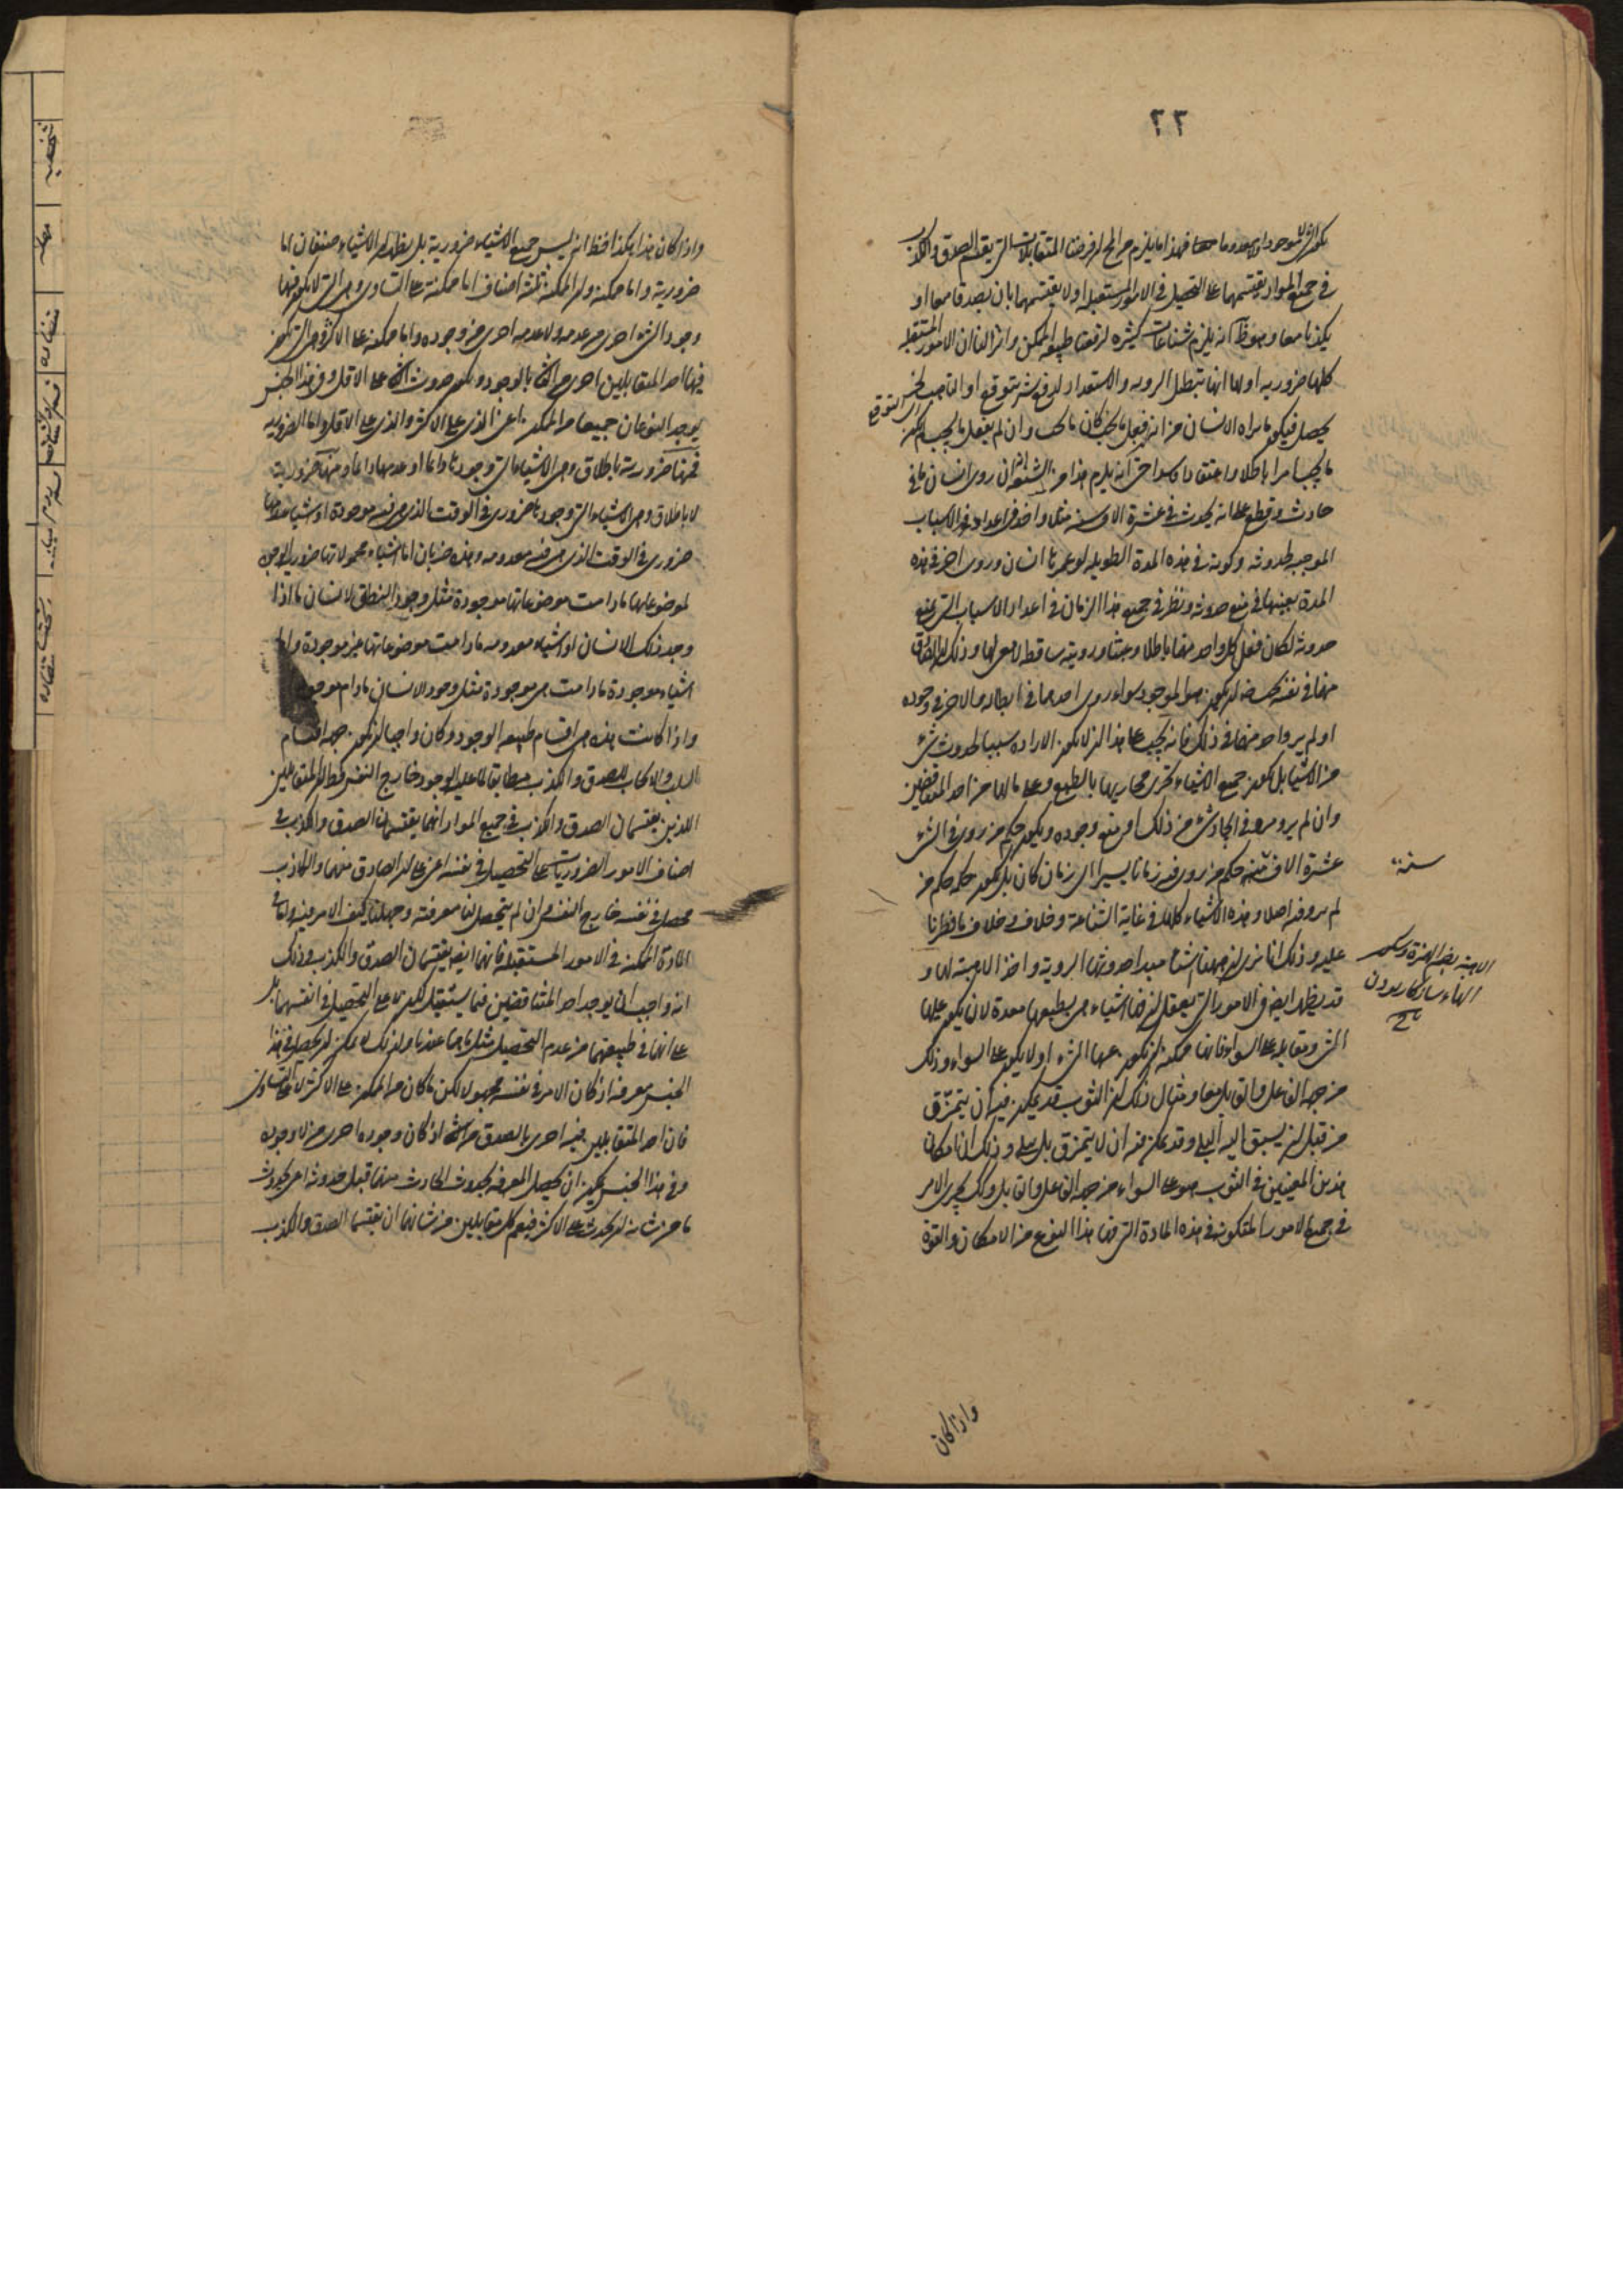 ٢٢
يكون الشيء لا موجودا ولا معدوما معا فهذا ما يلزم من المحال ان فرضنا المتقابلات التي تقتسم الصدق والكذب
في جميع المواد يقتسمهما على التحصيل في الامور المستقبلة او لا يقتسمهما بان يصدقا معا او
يكذبا معا وهو ظ انه يلزم شناعات كثيرة ان رفعنا طبيعة الممكن وانزلنا ان الامور المستقبلة
كلها ضرورية اولها انها تبطل الروية والاستعداد لدفع شر يتوقع او التأهب لخير يتوقع
يحصل فيكون ما يراه الانسان من انه ان فعل ما يجب كان ما يجب وان لم يفعل ما يجب لم يكن
ما يجب امرا باطلا واعتقادا فاسدا حتى انه يلزم هذا من الشنعة انه ان روى انسان ما في
حادث وقطع على انه يحدث في عشرة الاف سنة مثلا واخذ في اعداد هذه الاسباب
الموجبة لحدوثه وكونه في هذه المدة الطويلة لو عمرها انسان وروى اخر في هذه
المدة بعينها في منع حدوثه ونظر في جميع هذا الزمان في اعداد الاسباب التي تمنع
حدوثه لكان فعل كل واحد منهما باطلا وعبثا ورويته ساقطة لا معنى لها وذلك ان الصادق
منهما في نفسه يجب ضرورة ان يكون هو الموجود سواء روى احدهما في ابطاله والاخر في وجوده
او لم يرو واحد منهما في ذلك فانه يجب على هذا ان لا تكون الارادة سببا لحدوث شيء
من الاشياء بل تكون جميع الاشياء تجري مجاريها بالطبع وعلى ما لها من احد المتناقضين
وان لم يرو مرو في ايجاد شيء من ذلك او منع وجوده ويكون حكم من روى في الشيء
عشرة الاف سنة حكم من روى فيه زمانا يسيرا اي زمان كان بل يكون حكمه حكم من
لم يرو فيه اصلا وهذه الاشياء كلها في غاية الشناعة وخلاف ما فطرنا
عليه وذلك انا نرى ان ههنا اشياء مبدأ حدوثها الروية واخذ الاهبة لها و
قد يظهر ايضا في الامور التي تعقل ان ههنا اشياء هي بطبيعتها معدة لان يكون عليها
الشيء ومقابله على السواء فانها ممكنة ان يكون عنها الشيء او لا يكون على السواء وذلك
من جهة الفاعل والقابل معا ومثال ذلك ان الثوب قد يمكن فيه ان يتمزق
من قبل ان يسبق اليه البلى وقد يمكن فيه ان لا يتمزق بل يبلى وذلك ان امكان
هذين المعنيين في الثوب هو على السواء من جهة الفاعل والقابل وكذلك يجري الامر
في جميع الامور المتكونة في هذه المادة التي فيها هذا النوع من الامكان والقوة
سنة
الاهبة بضم الهمزة وسكون
الهاء ساز كار بودن
واذا كان
واذا كان هذا هكذا فظ انه ليس جميع الاشياء ضرورية بل يظهر ان الاشياء صنفان اما
ضرورية واما ممكنة وان الممكنة ثلثة اصناف اما ممكنة على التساوي وهي التي لا يكون فيها
وجود الشيء احرى من عدمه ولا عدمه احرى من وجوده واما ممكنة على الاكثر وهي التي يكون
فيها احد المتقابلين احرى من الثاني بالوجود ويكون حدوث الثاني على الاقل وفي هذا الجنس
يوجد النوعان جميعا من الممكن اعني الذي على الاكثر والذي على الاقل واما الضرورية
فمنها ضرورية باطلاق وهي الاشياء التي وجودها دائما او عدمها دائما ومنها ضرورية
لا باطلاق وهي الاشياء التي وجودها ضروري في الوقت الذي هي فيه موجودة او اشياء عدمها
ضروري في الوقت الذي هي فيه معدومة وهذه ضربان اما اشياء محمولاتها ضرورية الوجود
لموضوعاتها ما دامت موضوعاتها موجودة مثل وجود النطق للانسان ما اذا
وجد ذلك الانسان او اشياء معدومة ما دامت موضوعاتها غير موجودة واما
اشياء موجودة ما دامت هي موجودة مثل وجود الانسان ما دام موجودا
واذا كانت هذه هي اقسام طبيعة الوجود وكان واجبا ان يكون جهة اقتسام
السلب والايجاب للصدق والكذب مطابقا لما عليه الوجود خارج النفس فظ ان المتقابلين
اللذين يقتسمان الصدق والكذب في جميع المواد انما يقتسمان الصدق والكذب في
اصناف الامور الضروريات على التحصيل في نفسه اعني على ان الصادق منهما والكاذب
محصل في نفسه خارج النفس وان لم يتحصل لنا معرفته وجهلنا كيف الامر فيه واما في
المادة الممكنة في الامور المستقبلة فانهما ايضا يقتسمان الصدق والكذب وذلك
انه واجب ان يوجد احد المتناقضين فيما يستقبل لكن لا على التحصيل في انفسهما بل
على انهما في طبيعتهما من عدم التحصيل مثل ما هما عندنا ولذلك لا يمكن ان يحصل في هذا
الجنس معرفة اذ كان الامر في نفسه مجهولا لكن ما كان من الممكن على الاكثر لا على التساوي
فان احد المتقابلين فيه احرى بالصدق من الثاني اذ كان وجوده احرى من لا وجوده
وفي هذا الجنس يمكن ان يحصل المعرفة بحدوث الحادث منهما قبل حدوثه اعني بحدوث
ما من شانه ان يحدث على الاكثر فيعم كل متقابلين من شانهما ان يقتسما الصدق والكذب
شخصية
مهملة
متضادة